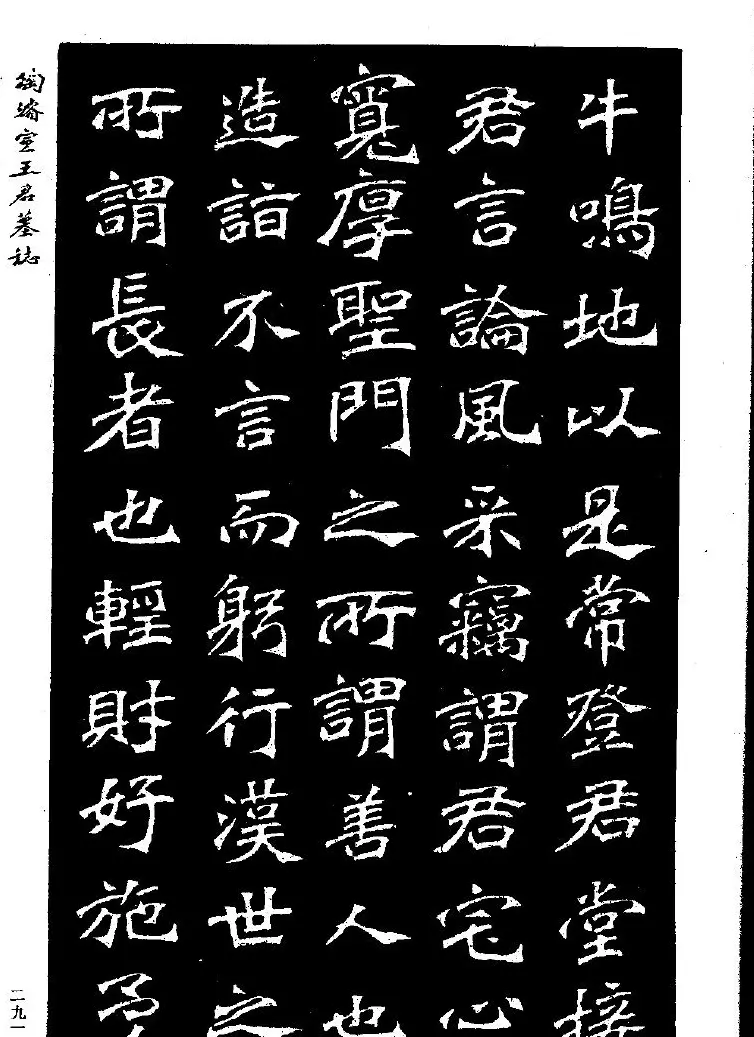 牛鳴地以是常登君堂接
君言論風采竊謂君宅心
寬厚聖門之所謂善人也
造詣不言而躬行漢世之
所謂長者也輕財好施
陶濬宣王君墓誌
二九一